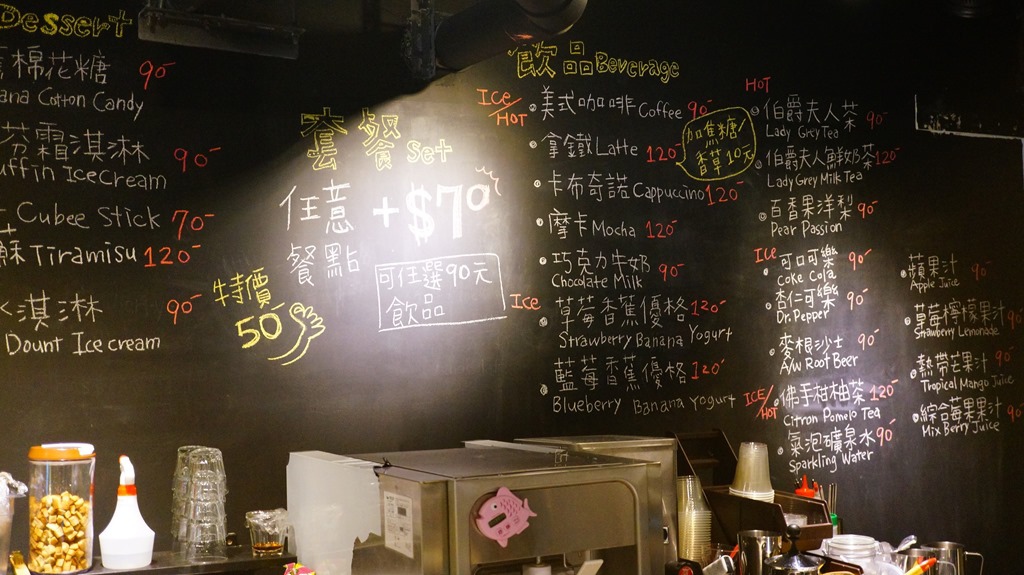 Dessert
棉花糖 90-
ana Cotton Candy
芬霜淇淋 90-
uffin Ice Cream
Cubee Stick 70-
Tiramisu 120-
淇淋 90-
Dount Ice cream
套餐 Set
任意 +$70
餐點
可任選90元
飲品
特價
50
飲品 Beverage
Ice/HOT
美式咖啡 Coffee 90-
拿鐵 Latte 120-
加焦糖/
香草10元
卡布奇諾 Cappuccino 120-
摩卡 Mocha 120-
巧克力牛奶 90-
Chocolate Milk
Ice
草莓香蕉優格 120-
Strawberry Banana Yogurt
藍莓香蕉優格 120-
Blueberry Banana Yogurt
HOT
伯爵夫人茶 90-
Lady Grey Tea
伯爵夫人鮮奶茶 120-
Lady Grey Milk Tea
百香果洋梨 90-
Pear Passion
Ice
可口可樂 90-
Coke Cola
杏仁可樂 90-
Dr. Pepper
麥根沙士 90-
A/w Root Beer
ICE/HOT
佛手柑柚茶 120-
Citron Pomelo Tea
氣泡礦泉水 90-
Sparkling Water
蘋果汁 90-
Apple Juice
草莓檸檬果汁 90-
Strawberry Lemonade
熱帶芒果汁 90-
Tropical Mango Juice
綜合莓果果汁 90-
Mix Berry Juice